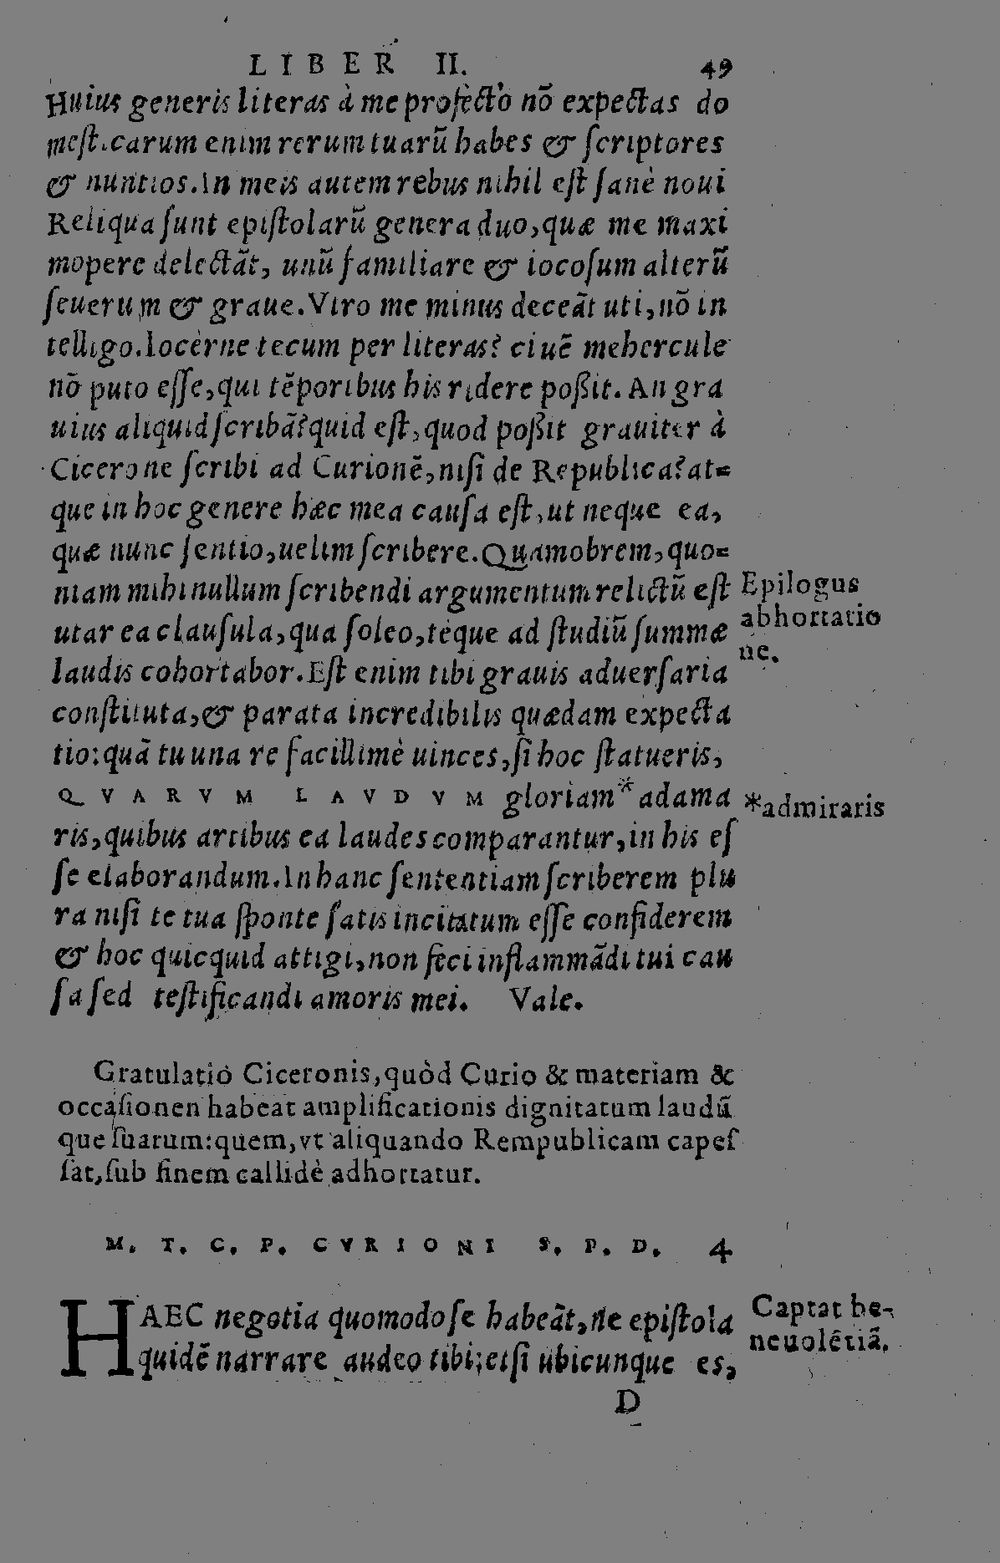 LIBER II. 49
Huius generis literas à me profectò nō expectas do
mesticarum enim rerum tuarũ habes & ſcriptores
& nuntios. In meis autem rebus nihil eſt ſanè noui
Reliqua ſunt epiſtolarũ genera duo, quæ me maxi
mopere delectāt, unũ familiare & iocoſum alterũ
ſeuerum & graue. Vtro me minus deceāt uti, nō in
telligo. Iocérne tecum per literas? ciuē mehercule
nō puto eſſe, qui tēporibus his ridere poßit. An gra
uius aliquid ſcribā? quid eſt, quod poßit grauiter à
Cicerone ſcribi ad Curionē, niſi de Republica? at=
que in hoc genere hæc mea cauſa eſt, ut neque ea,
quæ nunc ſentio, uelim ſcribere. Quamobrem, quo=
niam mihi nullum ſcribendi argumentum relictũ eſt
utar ea clauſula, qua ſoleo, téque ad ſtudiũ ſummæ
laudis cohortabor. Eſt enim tibi grauis aduerſaria
conſtituta, & parata incredibilis quædam expecta
tio: quā tu una re facillimè uinces, ſi hoc ſtatueris,
QVARVM LAVDVM gloriam * adama
ris, quibus artibus ea laudes comparantur, in his eſ
ſe elaborandum. In hanc ſententiam ſcriberem plu
ra niſi te tua ſponte ſatis incitatum eſſe confiderem
& hoc quicquid attigi, non feci inflammādi tui cau
ſa ſed teſtificandi amoris mei. Vale.
Epilogus
abhortatio
ne.
*admiraris
Gratulatio Ciceronis, quòd Curio & materiam &
occaſionen habeat amplificationis dignitatum laudũ
que ſuarum: quem, vt aliquando Rempublicam capeſ
ſat, ſub finem callidè adhortatur.
M. T. C. P. CVRIONI S. P. D. 4
HAEC negotia quomodo ſe habeāt, ne epiſtola
quidē narrare audeo tibi; etſi ubicunque es,
Captat be-
neuolētiā.
D